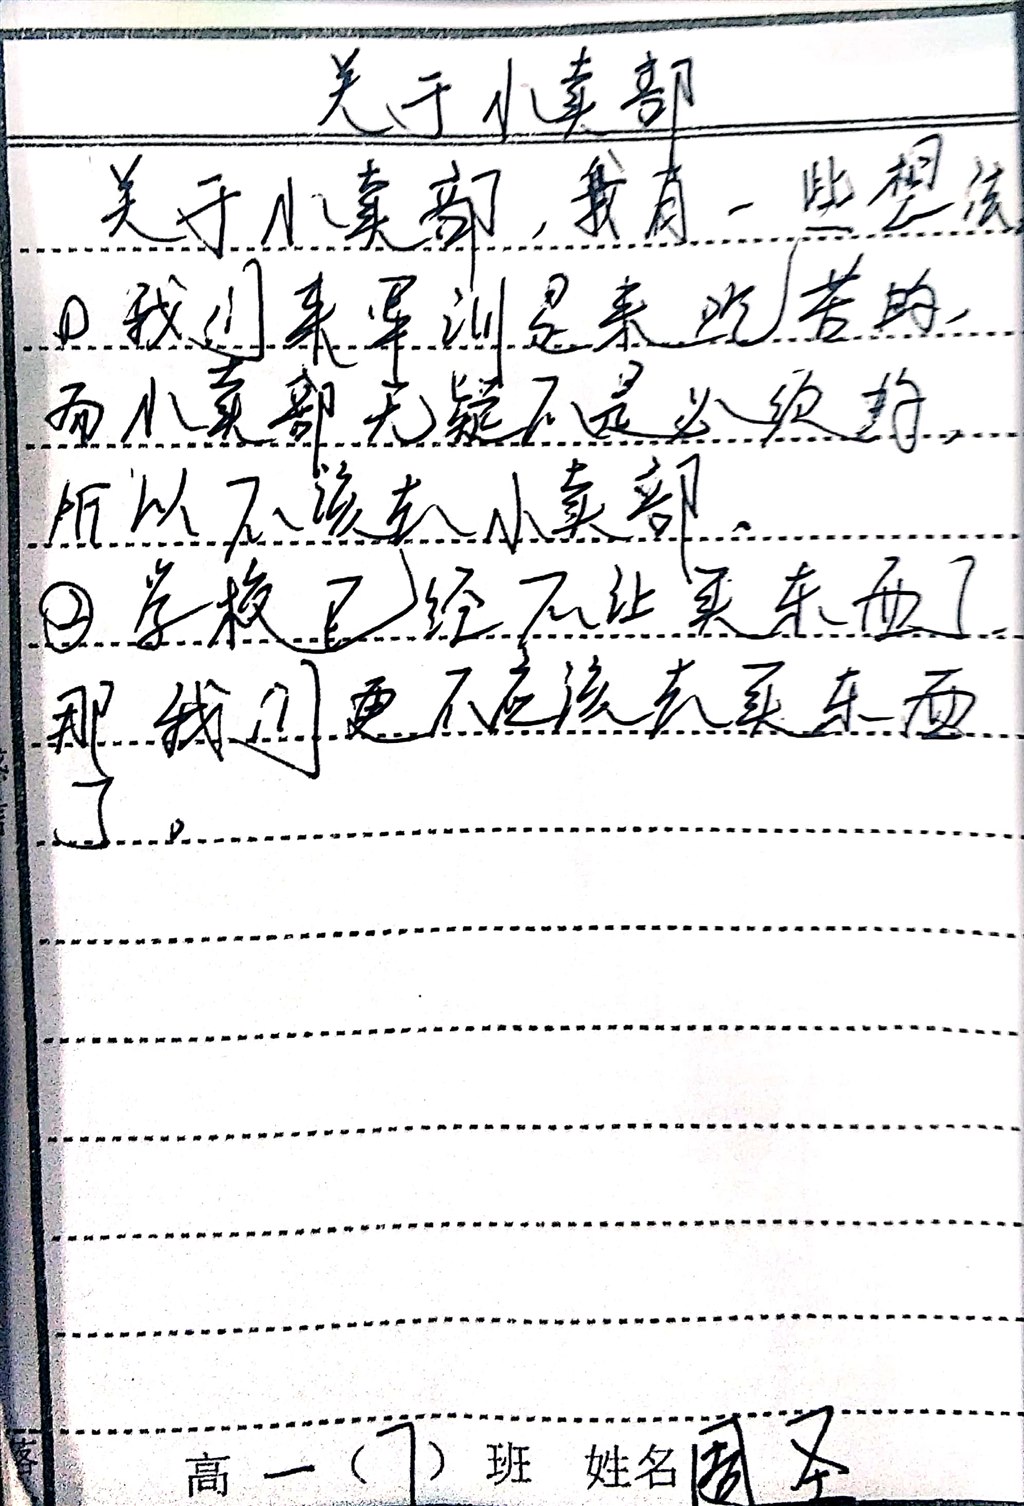 关于小卖部
关于小卖部,我有一些想法
① 我们来军训是来吃苦的,
而小卖部无疑不是必须的,
所以不该去小卖部。
② 学校已经不让买东西了,
那我们更不应该去买东西
了。
高一(7)班 姓名 周圣